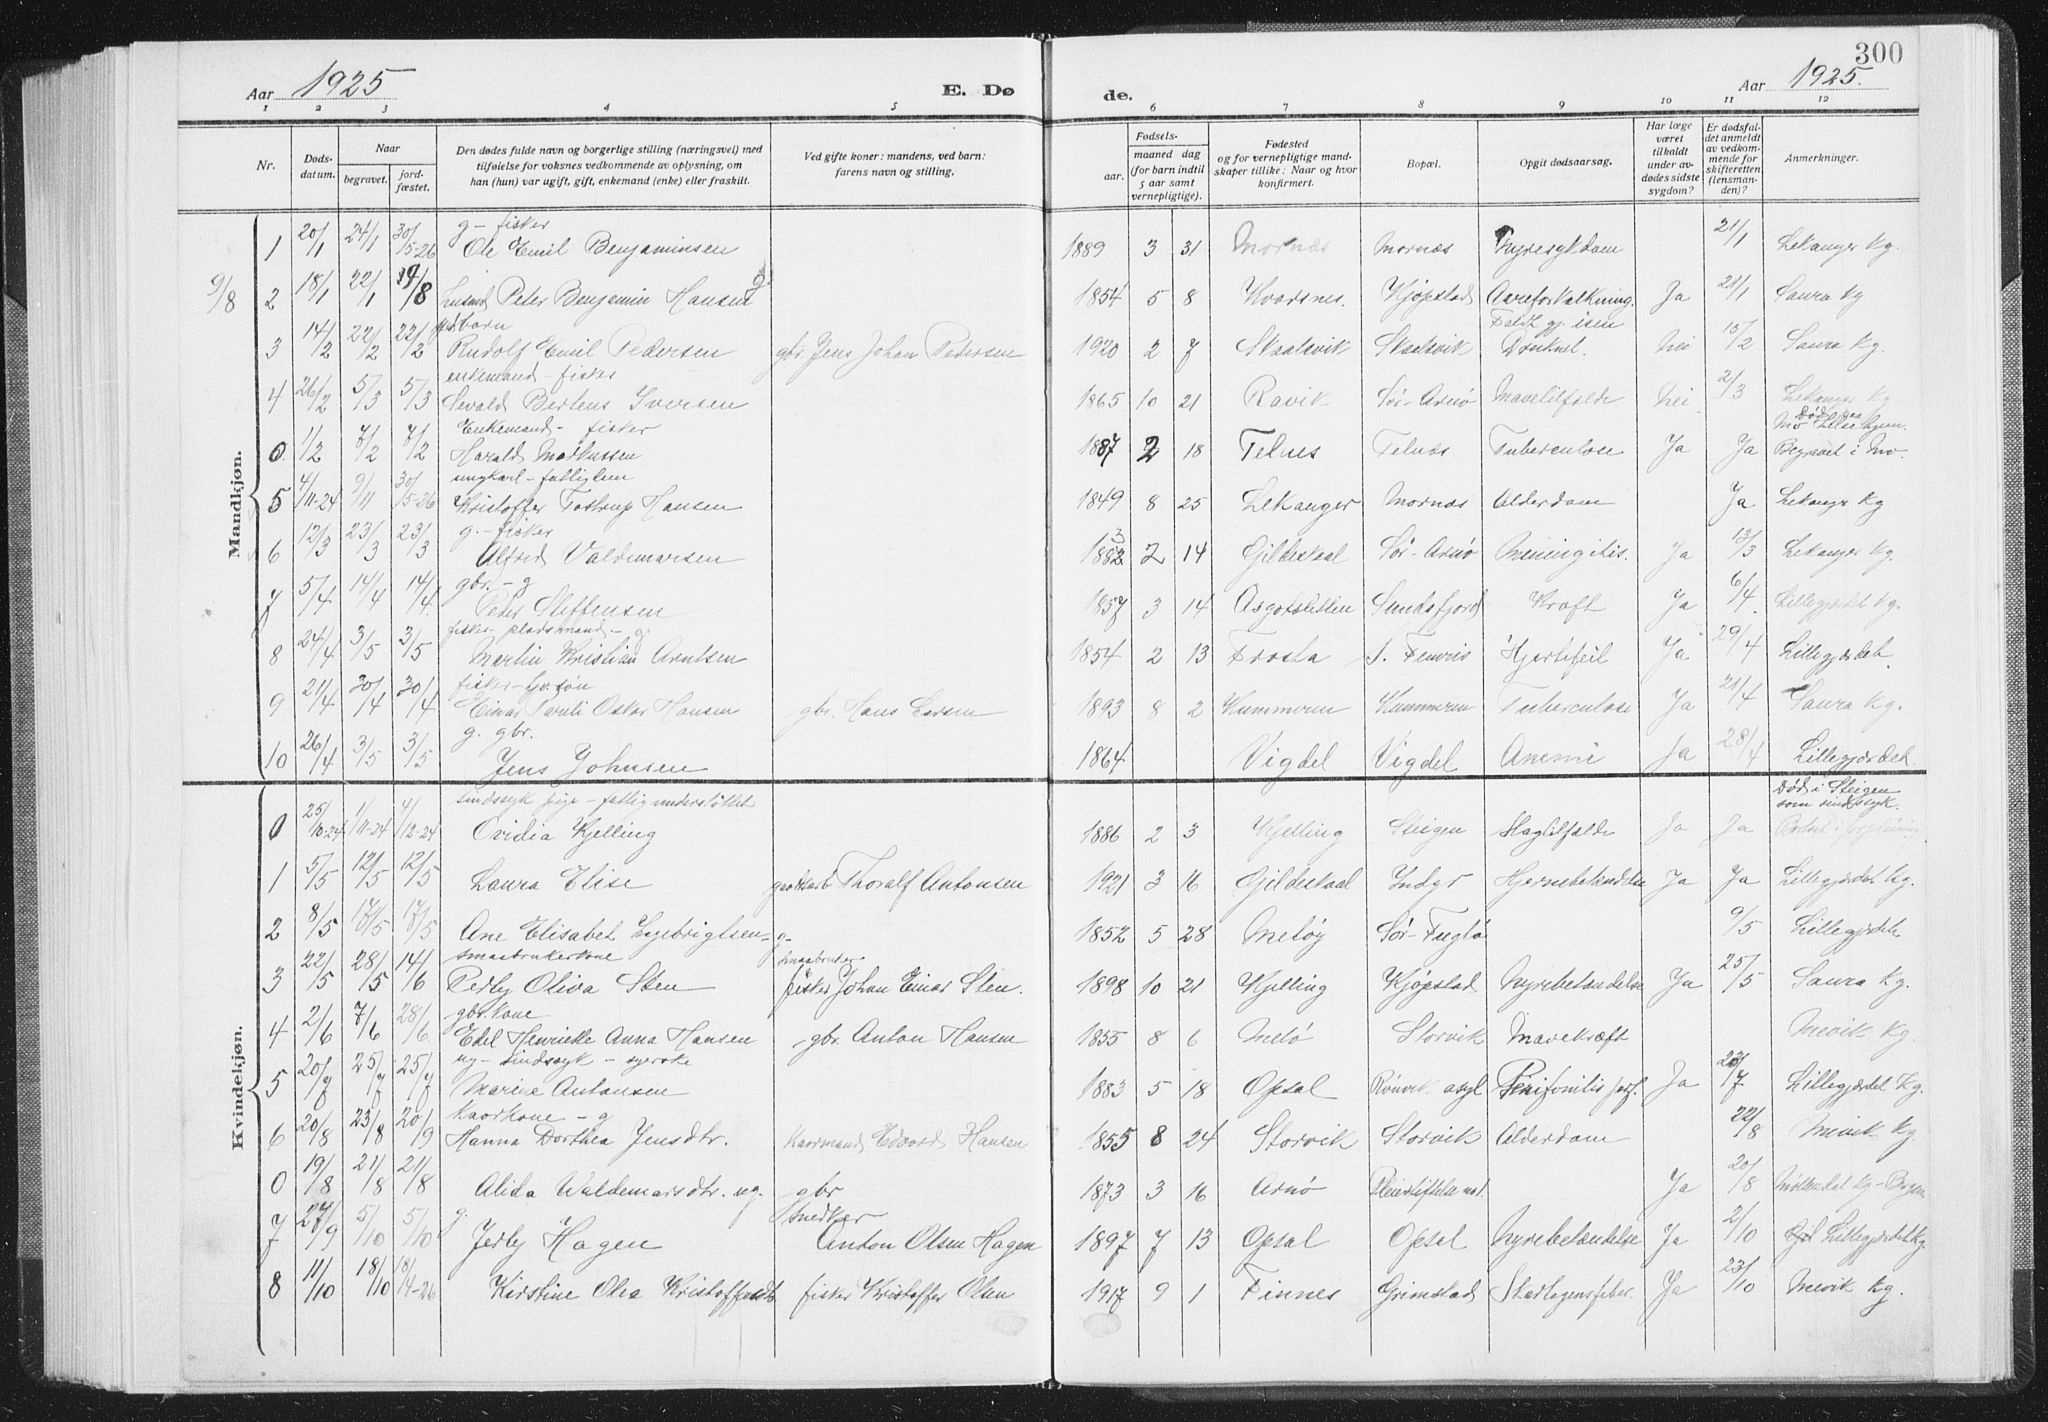 300
Aar 1925 E. Dø de. Aar 1925.
1 2 3 4 5 6 7 8 9 10 11 12
Nr. Døds-datum. Naar begravet. jord-fæstet. Den dødes fulde navn og borgerlige stilling (næringsvei) med tilføielse for voksnes vedkommende av oplysning, om han (hun) var ugift, gift, enkemand (enke) eller fraskilt. Ved gifte koner: mandens, ved barn: farens navn og stilling. Fødsels- aar. maaned dag (for barn indtil 5 aar samt vernepligtige). Fødested og for vernepligtige mandskaper tillike: Naar og hvor konfirmert. Bopæl. Opgit dødsaarsag. Har læge været tilkaldt under avdødes sidste sygdom? Er dødsfaldet anmeldt av vedkommende for skifteretten (lensmanden)? Anmerkninger.
Mandkjøn.
g – fisker
1 20/1 24/1 30/5-26 Ole Emil Benjaminsen 1889 3 31 Mornæs Mornæs Nyresykdom 21/1 Lekanger kg.
9/8 2 18/1 22/1 14/8 Peter Benjamin Hansen g 1854 5 8 Kvarsnes. Kjøpstad Aareforkalkning. Ja 21/1 Saura kg
gbr barn Faldt gj. isen
3 14/2 22/2 22/2 Rudolf Emil Pedersen gbr. Jens Johan Pedersen 1920 2 7 Skaalsvik Skaalsvik Druknet. Nei 15/2 Saura kg.
enkemand – fisker
4 26/2 5/3 5/3 Sevald Bertens Iversen 1865 10 21 Ravik Sør-Arnø Mavetilfælde Nei 2/3 Lekanger kg
Enkemand – fisker Død paa Mo
0. 1/2 7/2 7/2 Harald Markussen 1887 2 18 Telnes Telnæs Tuberculose Ja Ja Begravet i Mo.
ungkarl – fattiglem
5 4/11-24 9/11 30/5-26 Kristoffer Tostrup Hansen 1849 8 25 Lekanger Mornæs Alderdom Ja Lekanger kg
g. – fisker
6 12/3 23/3 23/3 Alfred Valdemarsen 1883 2 14 Gildeskaal Sør-Arnø Meningitis. Ja 13/3 Lekanger kg.
gbr. – g
7 5/4 14/4 14/4 Peder Steffensen 1857 3 14 Asgotsletten Sundsfjord Kræft Ja 6/4 Lillegjærdet kg.
fisker – pladsmand – g.
8 24/4 3/5 3/5 Martin Kristian Arntsen 1854 2 13 Frosta S. Fenris Hjertefeil Ja 29/4 Lillegjærdet
fisker – gbr. søn
9 21/4 30/4 30/4 Einar Oskar Hansen gbr. Hans Larsen 1893 8 2 Kummeren Kummeren Tuberculose Ja 21/4 Saura kg.
g. gbr.
10 26/4 3/5 3/5 Jens Johnsen 1864 Vigdel Vigdel Anemi Ja 28/4 Lillegjærdet
Kvindekjøn.
sindssyk pige – fattig understøttet Død i Steigen som sindssyk.
0 25/10-24 1/11-24 4/12-24 Ovidia Kjelling 1886 2 3 Kjelling Steigen Slagtilfælde Ja Ja
1 5/5 12/5 12/5 Laura Elise Thoralf Antonsen 1921 3 16 Gildeskaal Indyr Hjernebetændelse Ja Ja Lillegjærdet kg.
2 8/5 17/5 17/5 Ane Elisabet Engebrigtsen – g – 1852 5 28 Meløy Sør-Fuglø 9/5 Lillegjærdet
smaabrukerkone smaabruker
3 22/5 28/5 14/6 Perly Oliva Sten fisker Johan Einar Sten. 1898 10 21 Kjelling Kjøpstad Nyrebetændelse Ja 25/5 Saura kg.
gbr. kone
4 2/6 7/6 28/6 Edel Henrikke Anna Hansen gbr. Anton Hansen 1855 8 6 Melø Storvik Mavekræft Mevik kg.
ug – sindssyk – syerske
5 20/7 25/7 25/7 Marie Antonsen 1883 5 18 Opsal Rønvik asyl Ja 23/7 Lillegjærdet kg.
kaarkone – g
6 20/8 23/8 20/9 Hanna Dorthea Jensdtr. kaarmand Edvard Hansen 1855 8 24 Storvik Storvik Alderdom 22/8 Mevik kg.
0 19/8 21/8 21/8 Alida Waldemarsdtr. ug. gbr 1873 3 16 Arnø Ja 20/8 Møllendal kg – Bergen
g. snedker
7 27/9 5/10 5/10 Jerly Hagen Anton Olsen Hagen 1897 7 13 Opsal Opsal Nyrebetændelse Ja 2/10 Lillegjærdet kg.
8 11/10 18/10 18/4-26 Kirstine Olea Kristoffersdtr fisker Kristoffer Olsen 1917 9 1 Finnes Grimstad Skarlagensfeber. Ja 23/10 Mevik kg.